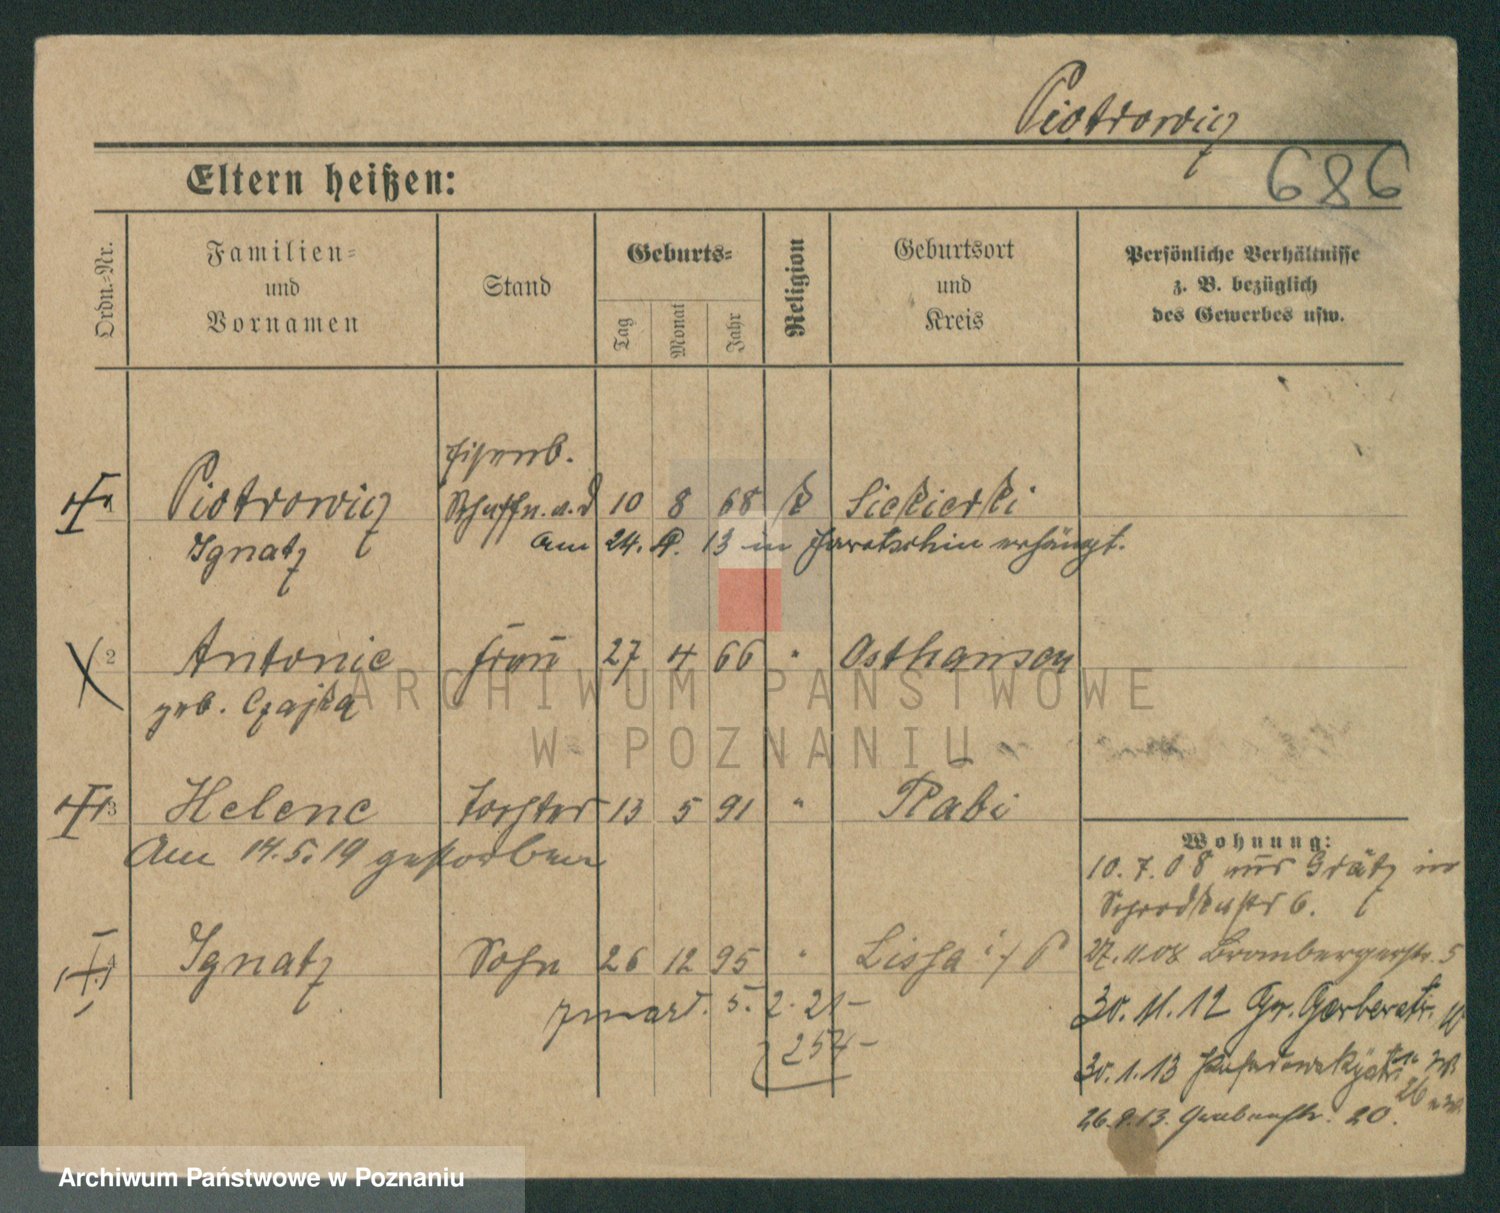 Piotrowicz
686
Eltern heißen:
Ordn.=Nr.
Familien=
und
Vornamen
Stand
Geburts=
Tag
Monat
Jahr
Religion
Geburtsort
und
Kreis
Persönliche Verhältnisse
z. B. bezüglich
des Gewerbes usw.
Eisenb.
1 Piotrowicz Schaffn. a. D 10 8 68 k Siekierki
Ignatz
am 24. 4. 13 in Jarotschin erhängt.
2 Antonie Frau 27 4 66 " Osthausen
geb. Czajka
3 Helene Tochter 13 5 91 "
Am 14.5.19 gestorben
4 Ignatz Sohn 26 12 95 " Lissa i/P
5. 2. 21 –
254 –
Wohnung:
10. 7. 08 aus Grätz in
Schrodkastr 6.
27. 11. 08 Brombergerstr. 5
30. 11. 12 Gr. Gerberstr.
30. 1. 13
26. 9. 13. Grabenstr. 20.
ARCHIWUM PAŃSTWOWE
W POZNANIU
Archiwum Państwowe w Poznaniu